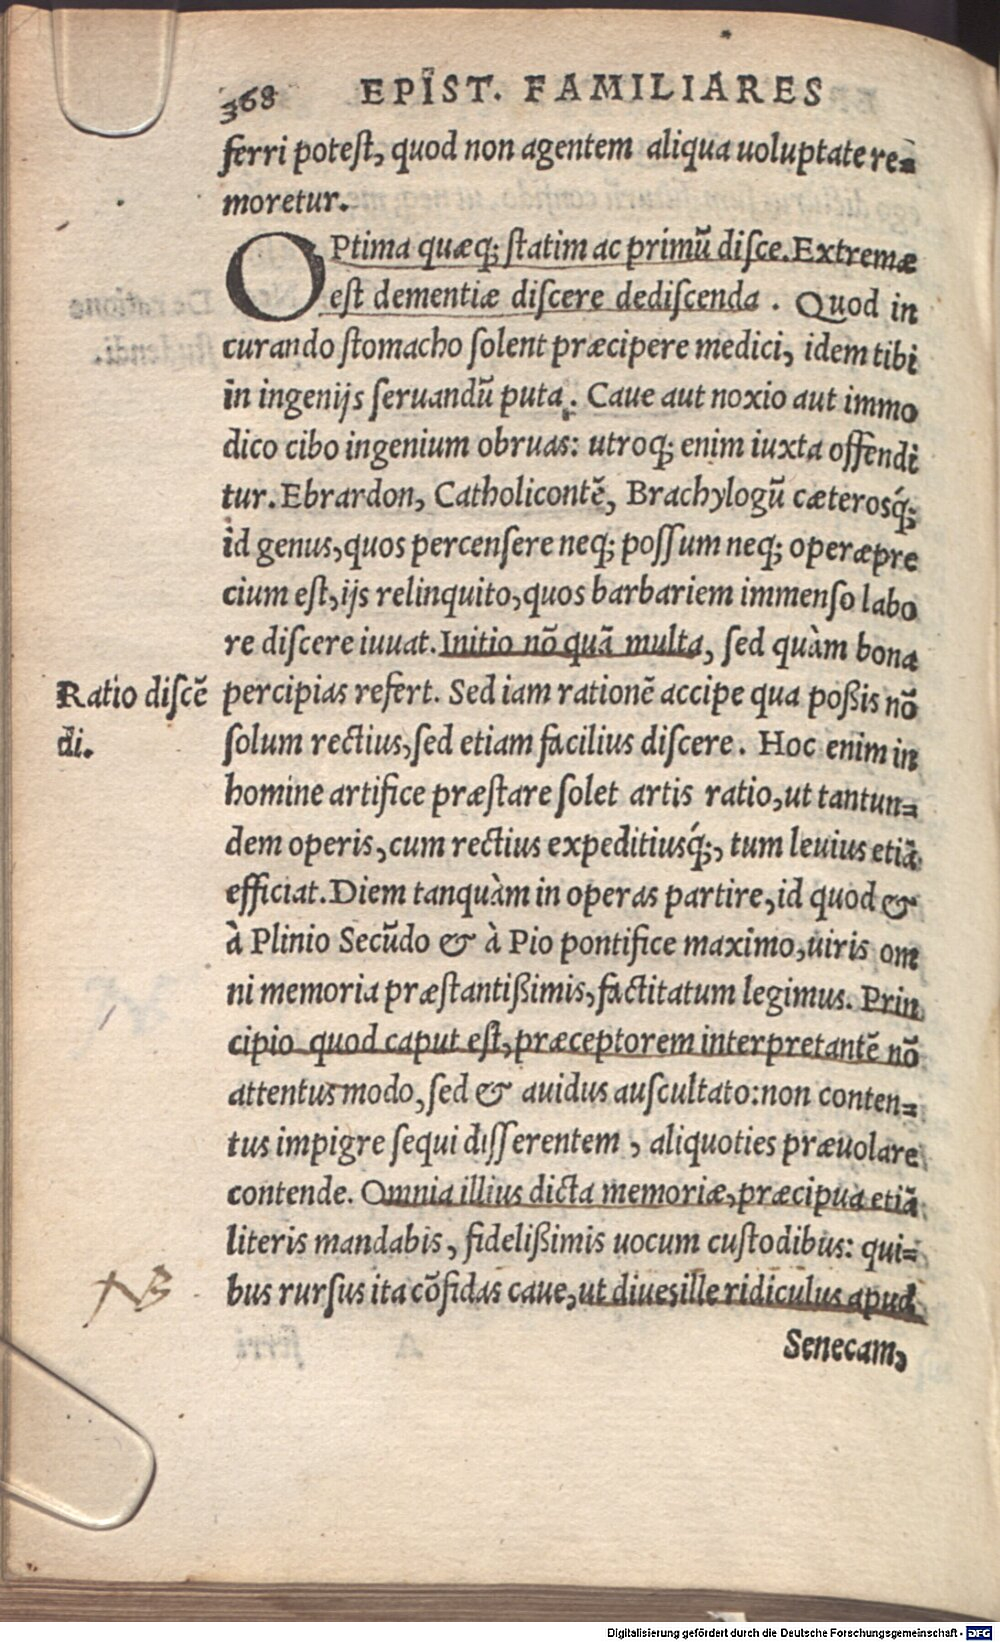 368 EPIST. FAMILIARES
ferri poteſt, quod non agentem aliqua uoluptate re=
moretur.
OPtima quæq; ſtatim ac primũ diſce. Extremæ
eſt dementiæ diſcere dediſcenda. Quod in
curando ſtomacho ſolent præcipere medici, idem tibi
in ingenijs ſeruandũ puta. Caue aut noxio aut immo
dico cibo ingenium obruas: utroq; enim iuxta offendi
tur. Ebrardon, Catholicontẽ, Brachylogũ cæterosq́;
id genus, quos percenſere neq; poſſum neq; operæpre
cium eſt, ijs relinquito, quos barbariem immenſo labo
re diſcere iuuat. Initio nõ quã multa, ſed quàm bona
Ratio diſcẽ
di.
percipias refert. Sed iam rationẽ accipe qua poßis nõ
ſolum rectius, ſed etiam facilius diſcere. Hoc enim in
homine artifice præſtare ſolet artis ratio, ut tantun=
dem operis, cum rectius expeditiusq́;, tum leuius etiã
efficiat. Diem tanquàm in operas partire, id quod &
à Plinio Secũdo & à Pio pontifice maximo, uiris om
ni memoria præſtantißimis, factitatum legimus. Prin
cipio quod caput eſt, præceptorem interpretantẽ nõ
attentus modo, ſed & auidus auſcultato: non conten=
tus impigre ſequi diſſerentem, aliquoties præuolare
contende. Omnia illius dicta memoriæ, præcipua etiã
literis mandabis, fidelißimis uocum cuſtodibus: qui=
NB
bus rurſus ita cõfidas caue, ut diues ille ridiculus apud
Senecam,
Digitalisierung gefördert durch die Deutsche Forschungsgemeinschaft - DFG